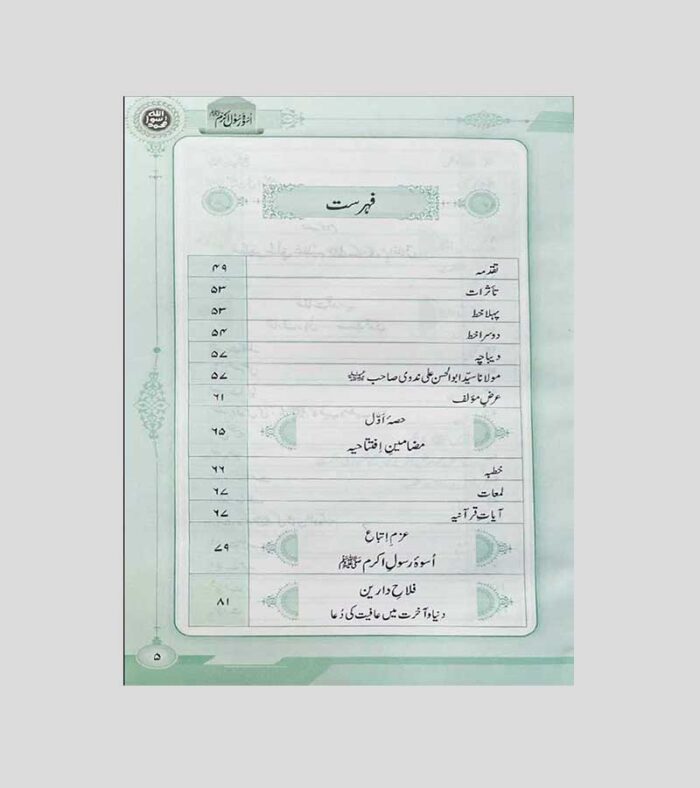 اُسوۂ رسولِ اکرم ﷺ
فہرست
تقدمہ ۴۹
تأثرات ۵۳
پہلا خط ۵۳
دوسرا خط ۵۴
دیباچہ ۵۷
مولانا سیّد ابوالحسن علی ندوی صاحب ۵۷
عرضِ مؤلف ۶۱
حصۂ اوّل
مضامینِ اِفتتاحیہ ۶۵
خطبہ ۶۶
لمعات ۶۷
آیاتِ قرآنیہ ۶۷
عزمِ اِتباع
اُسوۂ رسولِ اکرم ﷺ ۷۹
فلاحِ دارین
دنیا و آخرت میں عافیت کی دُعا ۸۱
۵